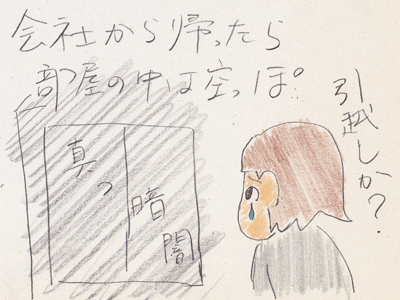 会社から帰ったら
部屋の中は空っぽ。
真っ
暗闇
引越しか?